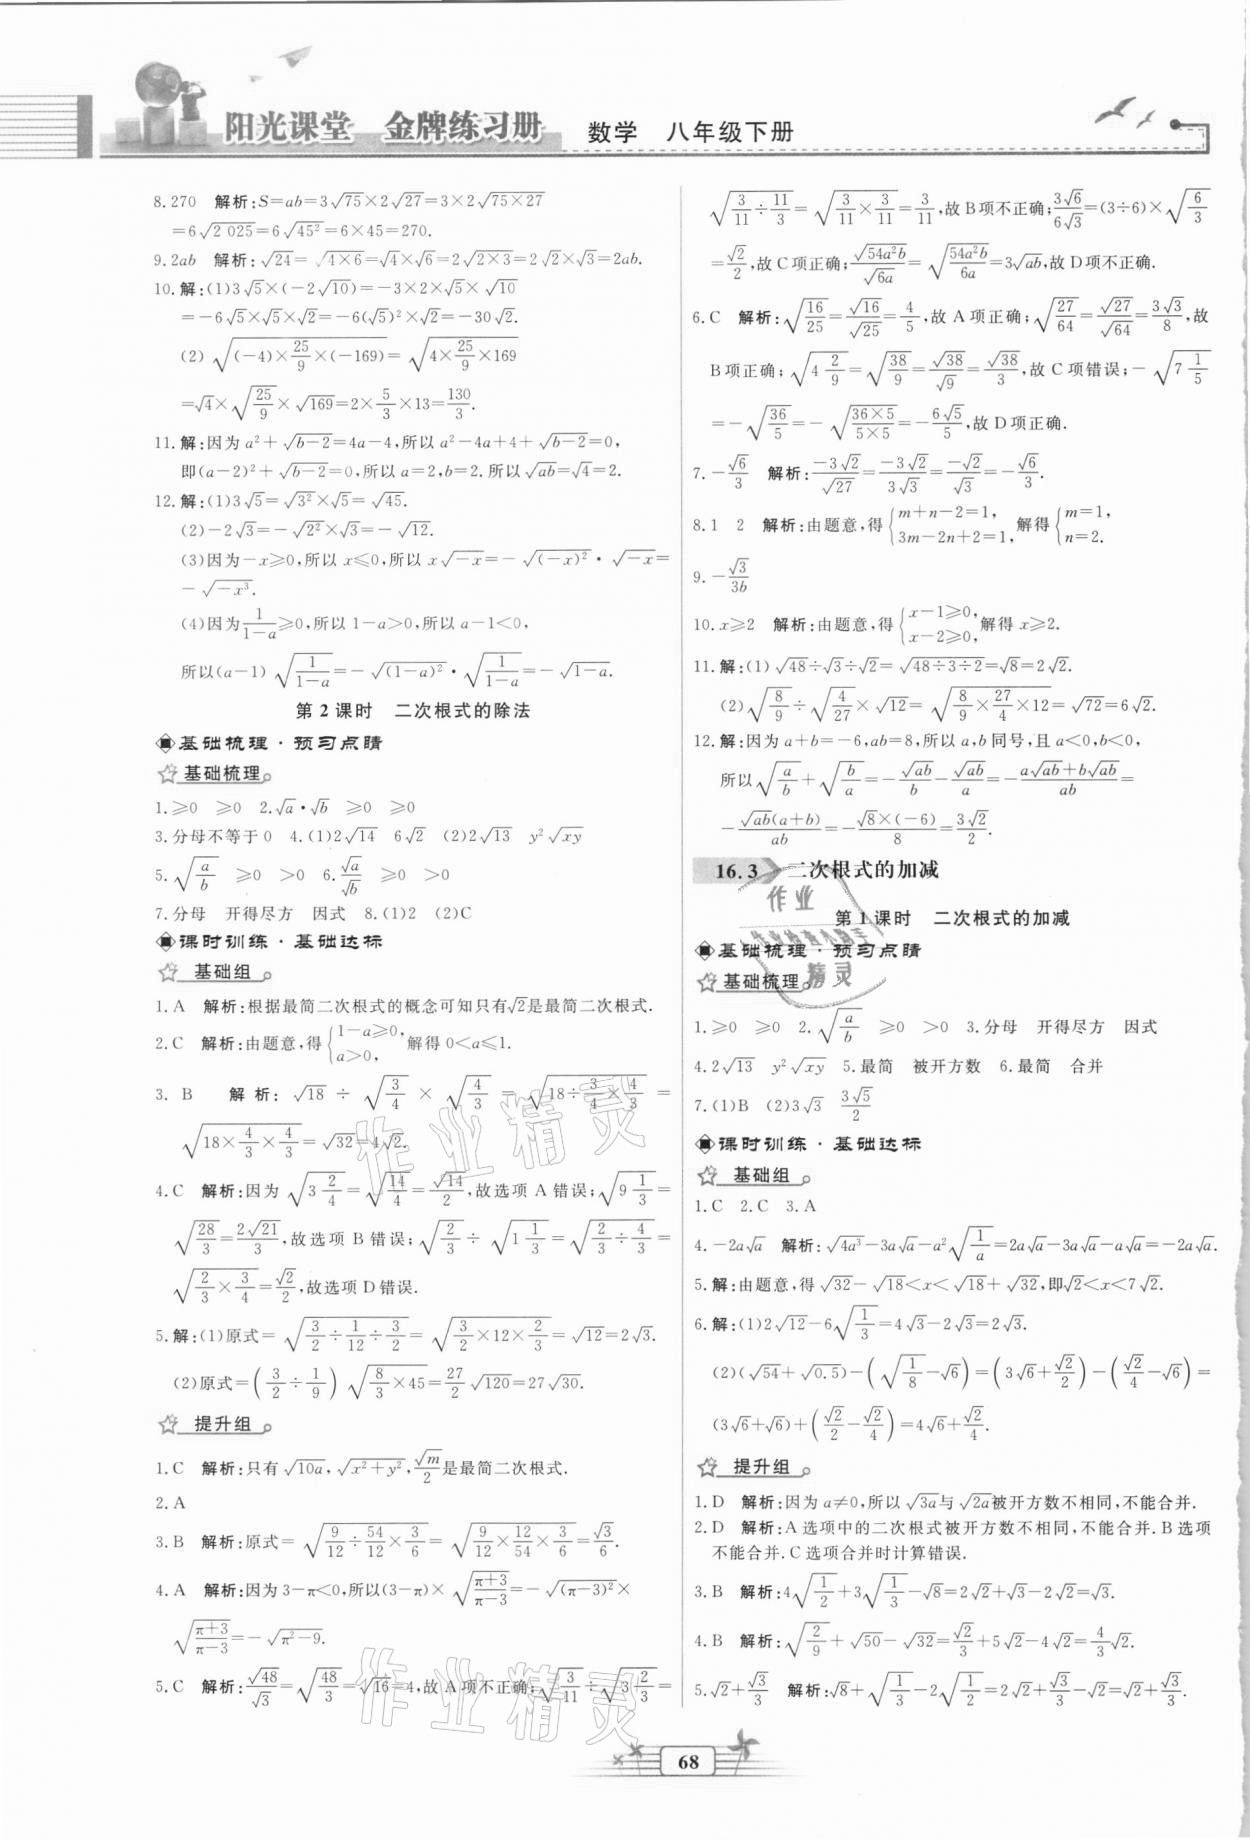 阳光课堂 金牌练习册 数学 八年级下册
8.270 解析:S=ab=3√75×2√27=3×2√(75×27)
=6√2 025=6√(45²)=6×45=270.
9.2ab 解析:√24=√(4×6)=√4×√6=2√(2×3)=2√2×√3=2ab.
10.解:(1)3√5×(-2√10)=-3×2×√5×√10
=-6√5×√5×√2=-6(√5)²×√2=-30√2.
(2)√((-4)×25/9×(-169))=√(4×25/9×169)
=√4×√(25/9)×√169=2×5/3×13=130/3.
11.解:因为a²+√(b-2)=4a-4,所以a²-4a+4+√(b-2)=0,
即(a-2)²+√(b-2)=0,所以a=2,b=2.所以√ab=√4=2.
12.解:(1)3√5=√(3²)×√5=√45.
(2)-2√3=-√(2²)×√3=-√12.
(3)因为-x≥0,所以x≤0,所以x√(-x)=-√((-x)²)·√(-x)=
-√(-x³).
(4)因为1/(1-a)≥0,所以1-a>0,所以a-1<0,
所以(a-1)√(1/(1-a))=-√((1-a)²)·√(1/(1-a))=-√(1-a).
第2课时 二次根式的除法
基础梳理·预习点睛
基础梳理
1.≥0 ≥0 2.√a·√b ≥0 ≥0
3.分母不等于0 4.(1)2√14 6√2 (2)2√13 y²√xy
5.√(a/b) ≥0 >0 6.√a/√b ≥0 >0
7.分母 开得尽方 因式 8.(1)2 (2)C
课时训练·基础达标
基础组
1.A 解析:根据最简二次根式的概念可知只有√2是最简二次根式.
2.C 解析:由题意,得{1-a≥0, a>0, 解得0<a≤1.
3. B 解析:√18÷√(3/4)×√(4/3)=√(18÷3/4×4/3)=
√(18×4/3×4/3)=√32=4√2.
4.C 解析:因为√(3 2/4)=√(14/4)=√14/2,故选项A错误;√(9 1/3)=
√(28/3)=2√21/3,故选项B错误;√(2/3)÷√(1 1/3)=√(2/3÷4/3)=
√(2/3×3/4)=√2/2,故选项D错误.
5.解:(1)原式=√(3/2÷1/12÷3/2)=√(3/2×12×2/3)=√12=2√3.
(2)原式=(3/2÷1/9)√(8/3×45)=27/2√120=27√30.
提升组
1.C 解析:只有√10a,√(x²+y²),√m/2是最简二次根式.
2.A
3.B 解析:原式=√(9/12÷54/12×3/6)=√(9/12×12/54×3/6)=√3/6.
4.A 解析:因为3-π<0,所以(3-π)×√((π+3)/(π-3))=-√((π-3)²)×
√((π+3)/(π-3))=-√(π²-9).
5.C 解析:√48/√3=√(48/3)=√16=4,故A项不正确;√(3/11)÷√(3 2/3)=
√(3/11÷11/3)=√(3/11×3/11)=3/11,故B项不正确;3√6/6√3=(3÷6)×√(6/3)
=√2/2,故C项正确;√(54a²b)/√6a=√(54a²b/6a)=3√ab,故D项不正确.
6.C 解析:√(16/25)=√16/√25=4/5,故A项正确;√(27/64)=√27/√64=3√3/8,故
B项正确;√(4 2/9)=√(38/9)=√38/√9=√38/3,故C项错误;-√(7 1/5)
=-√(36/5)=-√(36×5/5×5)=-6√5/5,故D项正确.
7.-√6/3 解析:-3√2/√27=-3√2/3√3=-√2/√3=-√6/3.
8.1 2 解析:由题意,得{m+n-2=1, 3m-2n+2=1, 解得{m=1, n=2.
9.-√3/3b
10.x≥2 解析:由题意,得{x-1≥0, x-2≥0, 解得x≥2.
11.解:(1)√48÷√3÷√2=√(48÷3÷2)=√8=2√2.
(2)√(8/9)÷√(4/27)×√12=√(8/9×27/4×12)=√72=6√2.
12.解:因为a+b=-6,ab=8,所以a,b同号,且a<0,b<0,
所以√(a/b)+√(b/a)=-√ab/b-√ab/a=-(a√ab+b√ab)/ab=
-√ab(a+b)/ab=-√8×(-6)/8=3√2/2.
16.3 二次根式的加减
第1课时 二次根式的加减
基础梳理·预习点睛
基础梳理
1.≥0 ≥0 2.√(a/b) ≥0 >0 3.分母 开得尽方 因式
4.2√13 y²√xy 5.最简 被开方数 6.最简 合并
7.(1)B (2)3√3 3√5/2
课时训练·基础达标
基础组
1.C 2.C 3.A
4.-2a√a 解析:√(4a³)-3a√a-a²√(1/a)=2a√a-3a√a-a√a=-2a√a.
5.解:由题意,得√32-√18<x<√18+√32,即√2<x<7√2.
6.解:(1)2√12-6√(1/3)=4√3-2√3=2√3.
(2)(√54+√0.5)-(√(1/8)-√6)=(3√6+√2/2)-(√2/4-√6)=
(3√6+√6)+(√2/2-√2/4)=4√6+√2/4.
提升组
1.D 解析:因为a≠0,所以√3a与√2a被开方数不相同,不能合并.
2.D 解析:A选项中的二次根式被开方数不相同,不能合并.B选项
不能合并.C选项合并时计算错误.
3.B 解析:4√(1/2)+3√(1/3)-√8=2√2+√3-2√2=√3.
4.B 解析:√(2/9)+√50-√32=√2/3+5√2-4√2=4/3√2.
5.√2+√3/3 解析:√8+√(1/3)-2√(1/2)=2√2+√3/3-√2=√2+√3/3.
作业精灵
作业精灵
作业
精灵
68